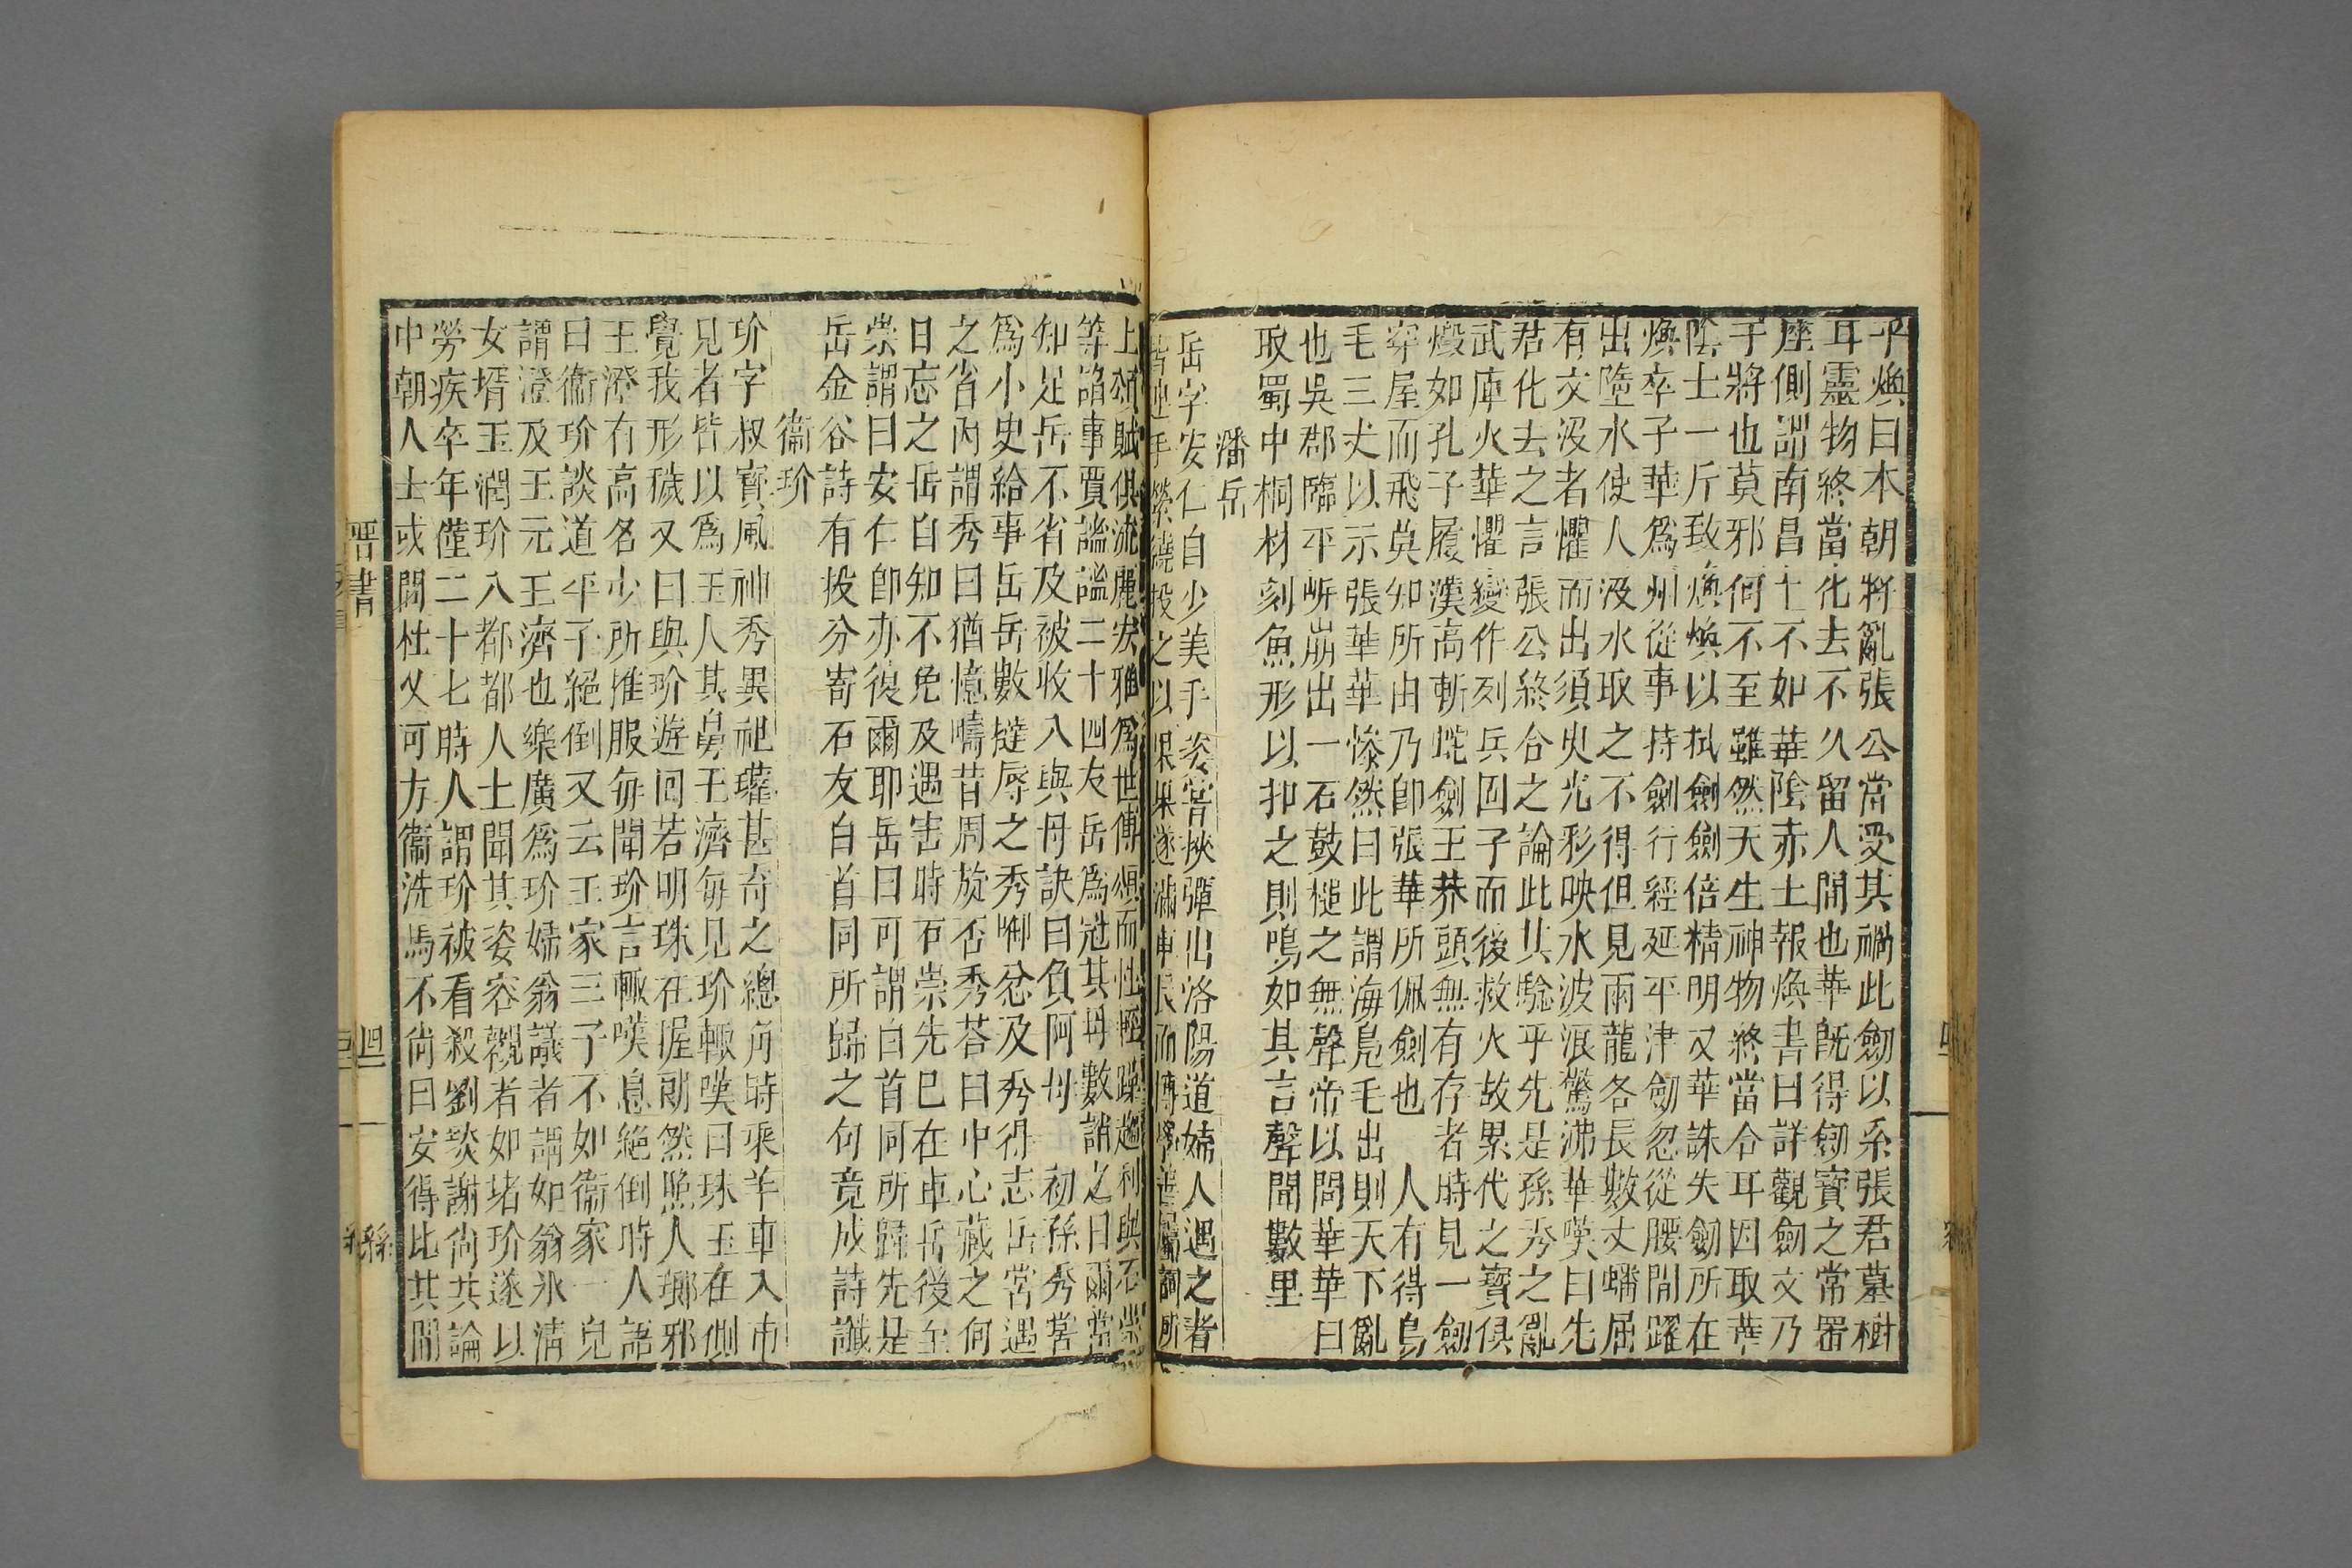 乎煥曰本朝將亂張公當受其禍此劒以系張君墓樹
耳靈物終當化去不久留人間也華旣得劒寶之常置
座側謂南昌土不如華陰赤土報煥書曰詳觀劒文乃
干將也莫邪何不至雖然天生神物終當合耳因取華
陰士一斤致煥煥以拭劒劒倍精明又華誅失劒所在
煥卒子華爲州從事持劒行經延平津劒忽從腰間躍
出墮水使人沒水取之不得但見兩龍各長數丈蟠屈
有文沒者懼而出須臾光彩映水波浪驚沸華嘆曰先
君化去之言張公終合之論此其驗乎先是孫秀之亂
武庫火華懼變作列兵固子而後救火故累代之寶俱
燬如孔子履漢高斬蛇劍王莽頭無有存者時見一劒
穿屋而飛莫知所由乃卽張華所佩劍也　人有得鳥
毛三丈以示張華華慘然曰此謂海鳧毛出則天下亂
也吳郡臨平岍崩出一石鼓槌之無聲帝以問華華曰
取蜀中桐材刻魚形以扣之則鳴如其言聲聞數里
潘岳
岳字安仁自少美手姿嘗挾彈出洛陽道婦人遇之者
皆連手縈繞投之以果果遂滿車長而博學善屬詞所
上頌賦俱流麗安雅爲世傳頌而性輕躁趨利與石崇
等諂事賈謐謐二十四友岳爲冠其母數誚之曰爾當
知足岳不省及被收入與母訣曰負阿母　初孫秀嘗
爲小史給事岳岳數撻辱之秀啣忿及秀得志岳嘗遇
之省內謂秀曰猶憶疇昔周旋否秀荅曰中心藏之何
日忘之岳自知不免及遇害時石崇先已在卓岳後至
崇謂曰安仁卽亦復爾耶岳曰可謂白首同所歸先是
岳金谷詩有投分寄石友白首同所歸之何竟成詩讖
衞玠
玠字叔寶風神秀異祖瓘甚奇之總角時乘羊車入市
見者皆以爲玉人其舅王濟每見玠輒嘆曰珠玉在側
覺我形穢又曰與玠遊冋若明珠在握朗然照人瑯邪
王澄有高名少所推服每聞玠言輒嘆息絕倒時人語
曰衞玠談道平子絕倒又云王家三子不如衞家一兒
謂澄及王元王濟也樂廣爲玠婦翁議者謂如翁氷淸
女壻玉潤玠入都都人士聞其姿容觀者如堵玠遂以
勞疾卒年僅二十七時人謂玠被看殺劉惔謝尙共論
中朝人士或問杜乂可方衞洗馬不尙曰安得比其間
晋書
四